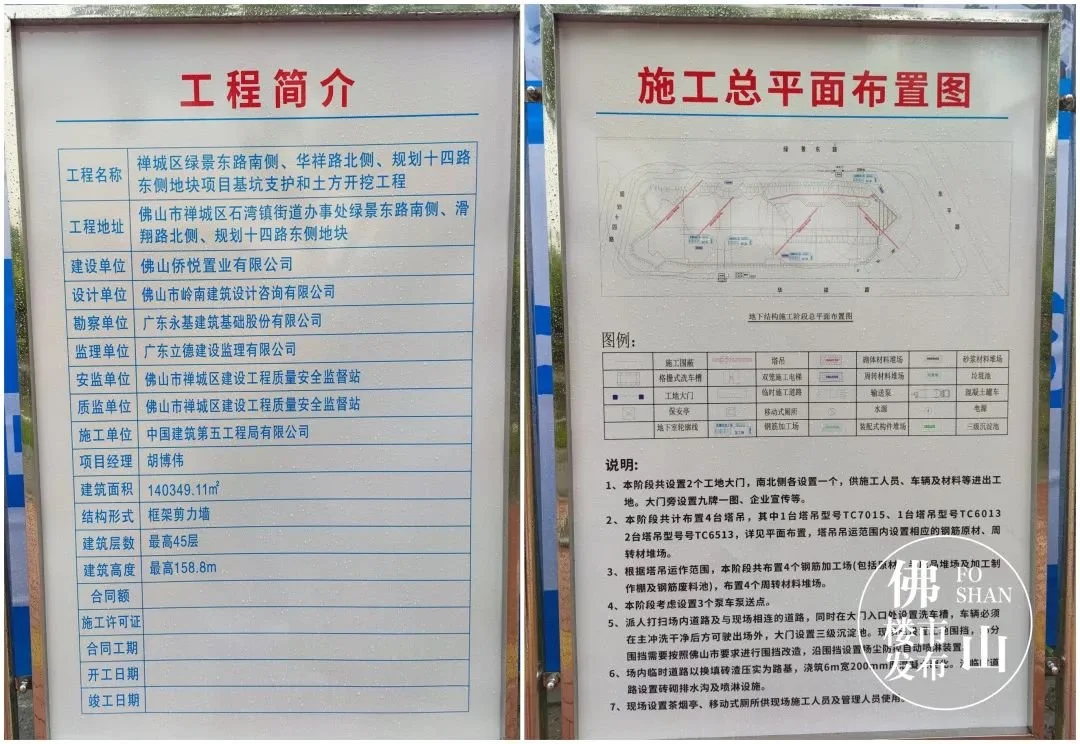 工程简介
工程名称
禅城区绿景东路南侧、华祥路北侧、规划十四路
东侧地块项目基坑支护和土方开挖工程
工程地址
佛山市禅城区石湾镇街道办事处绿景东路南侧、滑
翔路北侧、规划十四路东侧地块
建设单位 佛山侨悦置业有限公司
设计单位 佛山市岭南建筑设计咨询有限公司
勘察单位 广东永基建筑基础股份有限公司
监理单位 广东立德建设监理有限公司
安监单位 佛山市禅城区建设工程质量安全监督站
质监单位 佛山市禅城区建设工程质量安全监督站
施工单位 中国建筑第五工程局有限公司
项目经理 胡博伟
建筑面积 140349.11㎡
结构形式 框架剪力墙
建筑层数 最高45层
建筑高度 最高158.8m
合同额
施工许可证
合同工期
开工日期
竣工日期
施工总平面布置图
绿景东路
规划十四路
东平路
华祥路
地下结构施工阶段总平面布置图
图例：
施工围蔽 塔吊 砌体材料堆场 砂浆材料堆场
格栅式洗车槽 双笼施工电梯 周转材料堆场 垃圾池
工地大门 临时施工道路 输送泵 混凝土罐车
保安亭 移动式厕所 水源 电源
地下室轮廓线 钢筋加工场 装配式构件堆场 三级沉淀池
说明：
1、本阶段共设置2个工地大门，南北侧各设置一个，供施工人员、车辆及材料等进出工
地。大门旁设置九牌一图、企业宣传等。
2、本阶段共计布置4台塔吊，其中1台塔吊型号TC7015、1台塔吊型号TC6013
2台塔吊型号号TC6513，详见平面布置，塔吊吊运范围内设置相应的钢筋原材、周
转材堆场。
3、根据塔吊运作范围，本阶段共布置4个钢筋加工场(包括原材、吊堆场及加工制
作棚及钢筋废料池)，布置4个周转材料堆场。
4、本阶段考虑设置3个泵车泵送点。
5、派人打扫场内道路及与现场相连的道路，同时在大门入口处设置洗车槽，车辆必须
在主冲洗干净后方可驶出场外，大门设置三级沉淀池。现围挡，分
围挡需要按照佛山市要求进行围挡改造，沿围挡设置扬尘防控自动喷淋装置
6、场内临时道路以换填砖渣压实为路基，浇筑6m宽200mm临时道
路设置砖砌排水沟及喷淋设施。
7、现场设置茶烟亭、移动式厕所供现场施工人员及管理人员使用
佛山
FO
SHAN
楼市
发布